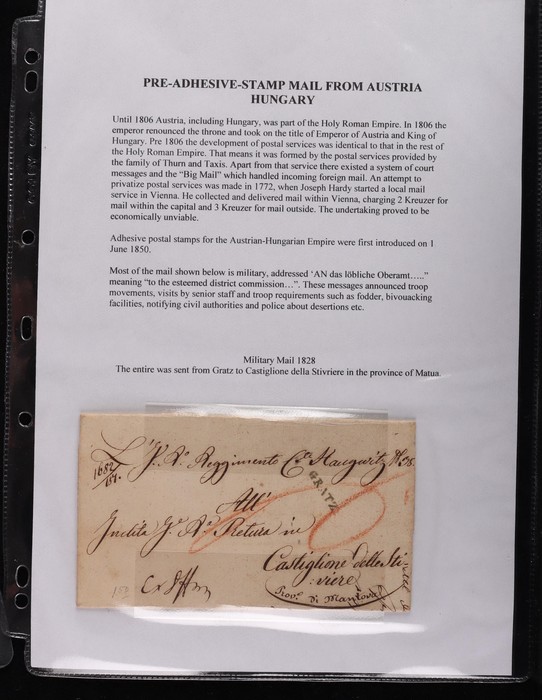 PRE-ADHESIVE-STAMP MAIL FROM AUSTRIA
HUNGARY
Until 1806 Austria, including Hungary, was part of the Holy Roman Empire. In 1806 the
emperor renounced the throne and took on the title of Emperor of Austria and King of
Hungary. Pre 1806 the development of postal services was identical to that in the rest of
the Holy Roman Empire. That means it was formed by the postal services provided by
the family of Thurn and Taxis. Apart from that service there existed a system of court
messages and the “Big Mail” which handled incoming foreign mail. An attempt to
privatize postal services was made in 1772, when Joseph Hardy started a local mail
service in Vienna. He collected and delivered mail within Vienna, charging 2 Kreuzer for
mail within the capital and 3 Kreuzer for mail outside. The undertaking proved to be
economically unviable.
Adhesive postal stamps for the Austrian-Hungarian Empire were first introduced on 1
June 1850.
Most of the mail shown below is military, addressed ‘AN das löbliche Oberamt…..”
meaning “to the esteemed district commission…”. These messages announced troop
movements, visits by senior staff and troop requirements such as fodder, bivouacking
facilities, notifying civil authorities and police about desertions etc.
Military Mail 1828
The entire was sent from Gratz to Castiglione della Stivriere in the province of Matua.
Reggimento Haugwitz
GRATZ
All'
Inclita Pretura in
Castiglione delle Sti
viere
Prov. di Mantova